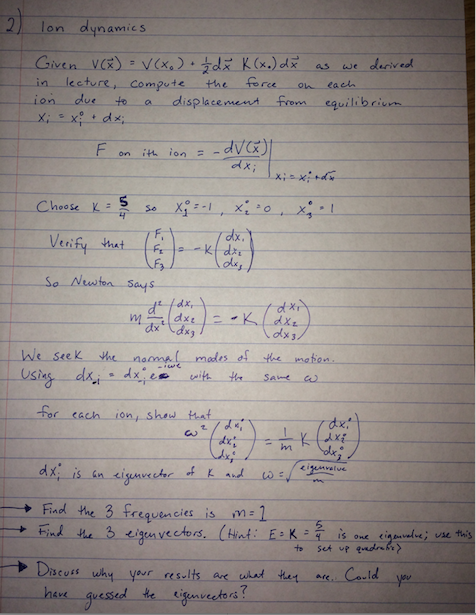 2) Ion dynamics
Given V(x⃗) = V(x₀) + ½ dx⃗ K(x₀) dx⃗ as we derived
in lecture, compute the force on each
ion due to a displacement from equilibrium
xᵢ = xᵢ⁰ + dxᵢ
F on ith ion = - dV(x⃗)/dxᵢ | xᵢ = xᵢ⁰ + dx
Choose K = 5/4 so x₁⁰ = -1, x₂⁰ = 0, x₃⁰ = 1
Verify that (F₁ F₂ F₃) = -K (dx₁ dx₂ dx₃)
So Newton says
m d²/dx² (dx₁ dx₂ dx₃) = -K (dx₁ dx₂ dx₃)
We seek the normal modes of the motion.
Using dxᵢ = dxᵢ⁰ e^-iωt with the same ω
for each ion, show that
ω² (dx₁⁰ dx₂⁰ dx₃⁰) = 1/m K (dx₁⁰ dx₂⁰ dx₃⁰)
dxᵢ⁰ is an eigenvector of K and ω = √(eigenvalue/m)
→ Find the 3 frequencies is m = 1
→ Find the 3 eigenvectors. (Hint: E = K = 5/4 is one eigenvalue; use this
to set up quadratic)
→ Discuss why your results are what they are. Could you
have guessed the eigenvectors?